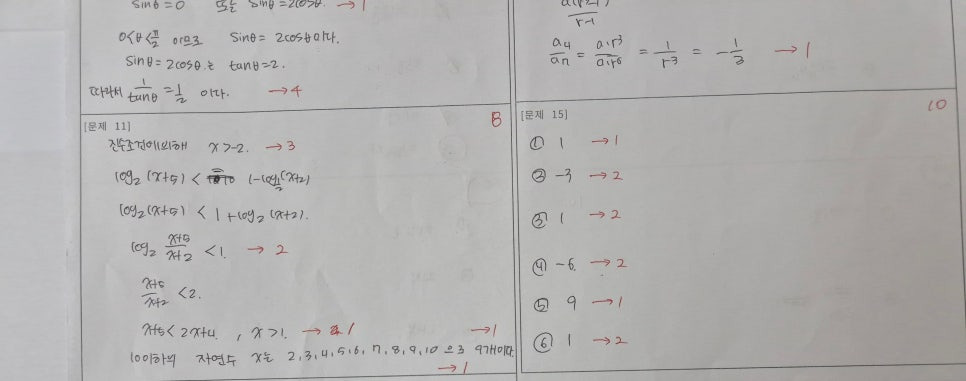 sinθ=0 또는 sinθ=2cosθ. →1
0<θ<π/2 이므로 sinθ=2cosθ이다.
sinθ=2cosθ는 tanθ=2.
따라서 1/tanθ=1/2 이다. →4
r-1
a₄/aₙ = a₁r³/a₁r⁶ = 1/r³ = -1/3 →1
[문제 11] 8
진수조건에 의해 x>-2. →3
log₂(x+5) < 1-log_{1/2}(x+2)
log₂(x+5) < 1+log₂(x+2).
log₂ (x+5)/(x+2) <1. →2
(x+5)/(x+2) <2.
x+5<2x+4, x>1. →1 →1
10이하의 자연수 x는 2,3,4,5,6,7,8,9,10 으로 9개이다.
→1
[문제 15] 10
① 1 →1
② -3 →2
③ 1 →2
④ -6. →2
⑤ 9 →1
⑥ 1 →2